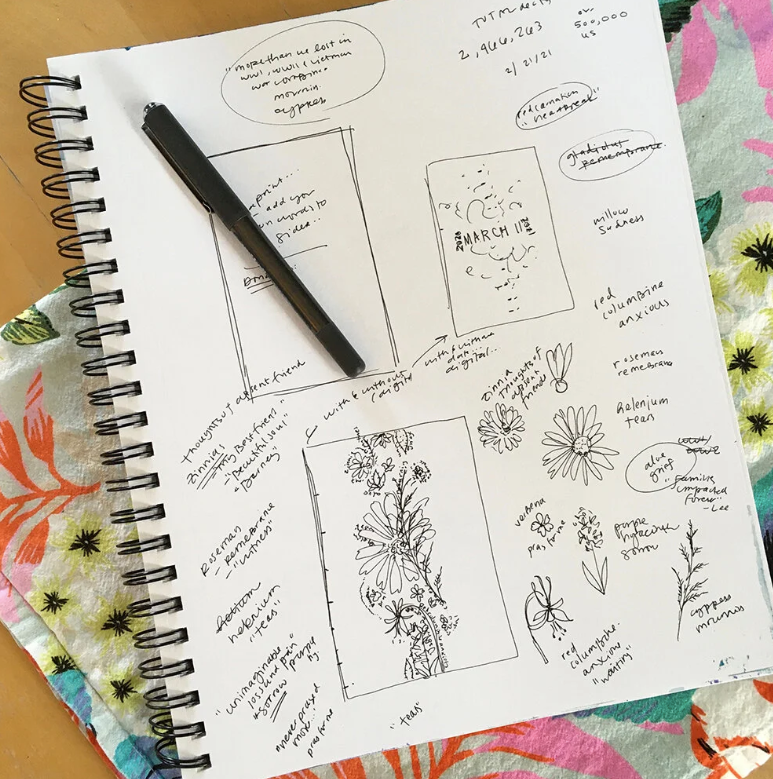 "more than we lost in
WWI, WWII & Vietnam
war combine
mournin
cypres
TOTAL
2,466,263
2/21/21
500,000
US
red carnation
"heartbreak"
gladiolus
remembrance
print...
- add your
own words to
sides..
willow
sadness
2020 MARCH 11 2021
red
columbine
anxious
rosemary
remembrance
helenium
tears
aloe
grief
"families
impacted
forever"
- Lee
with & without
digital
with & without
digital..
zinnia
thoughts of
absent
friend
thoughts of absent friend
zinnias
- "my Best friend"
- "Beautiful soul"
"Barney
verbena
pray for me
purple
hyacinth
sorrow
cypress
mournos
red
columbine
anxious
"waiting"
Rosemary
- remembrance
- "witness"
helenium
"teas"
"unimaginable
loss and pain"
sorrow purple
hy
"never prayed
more...
pray for me
"teas"